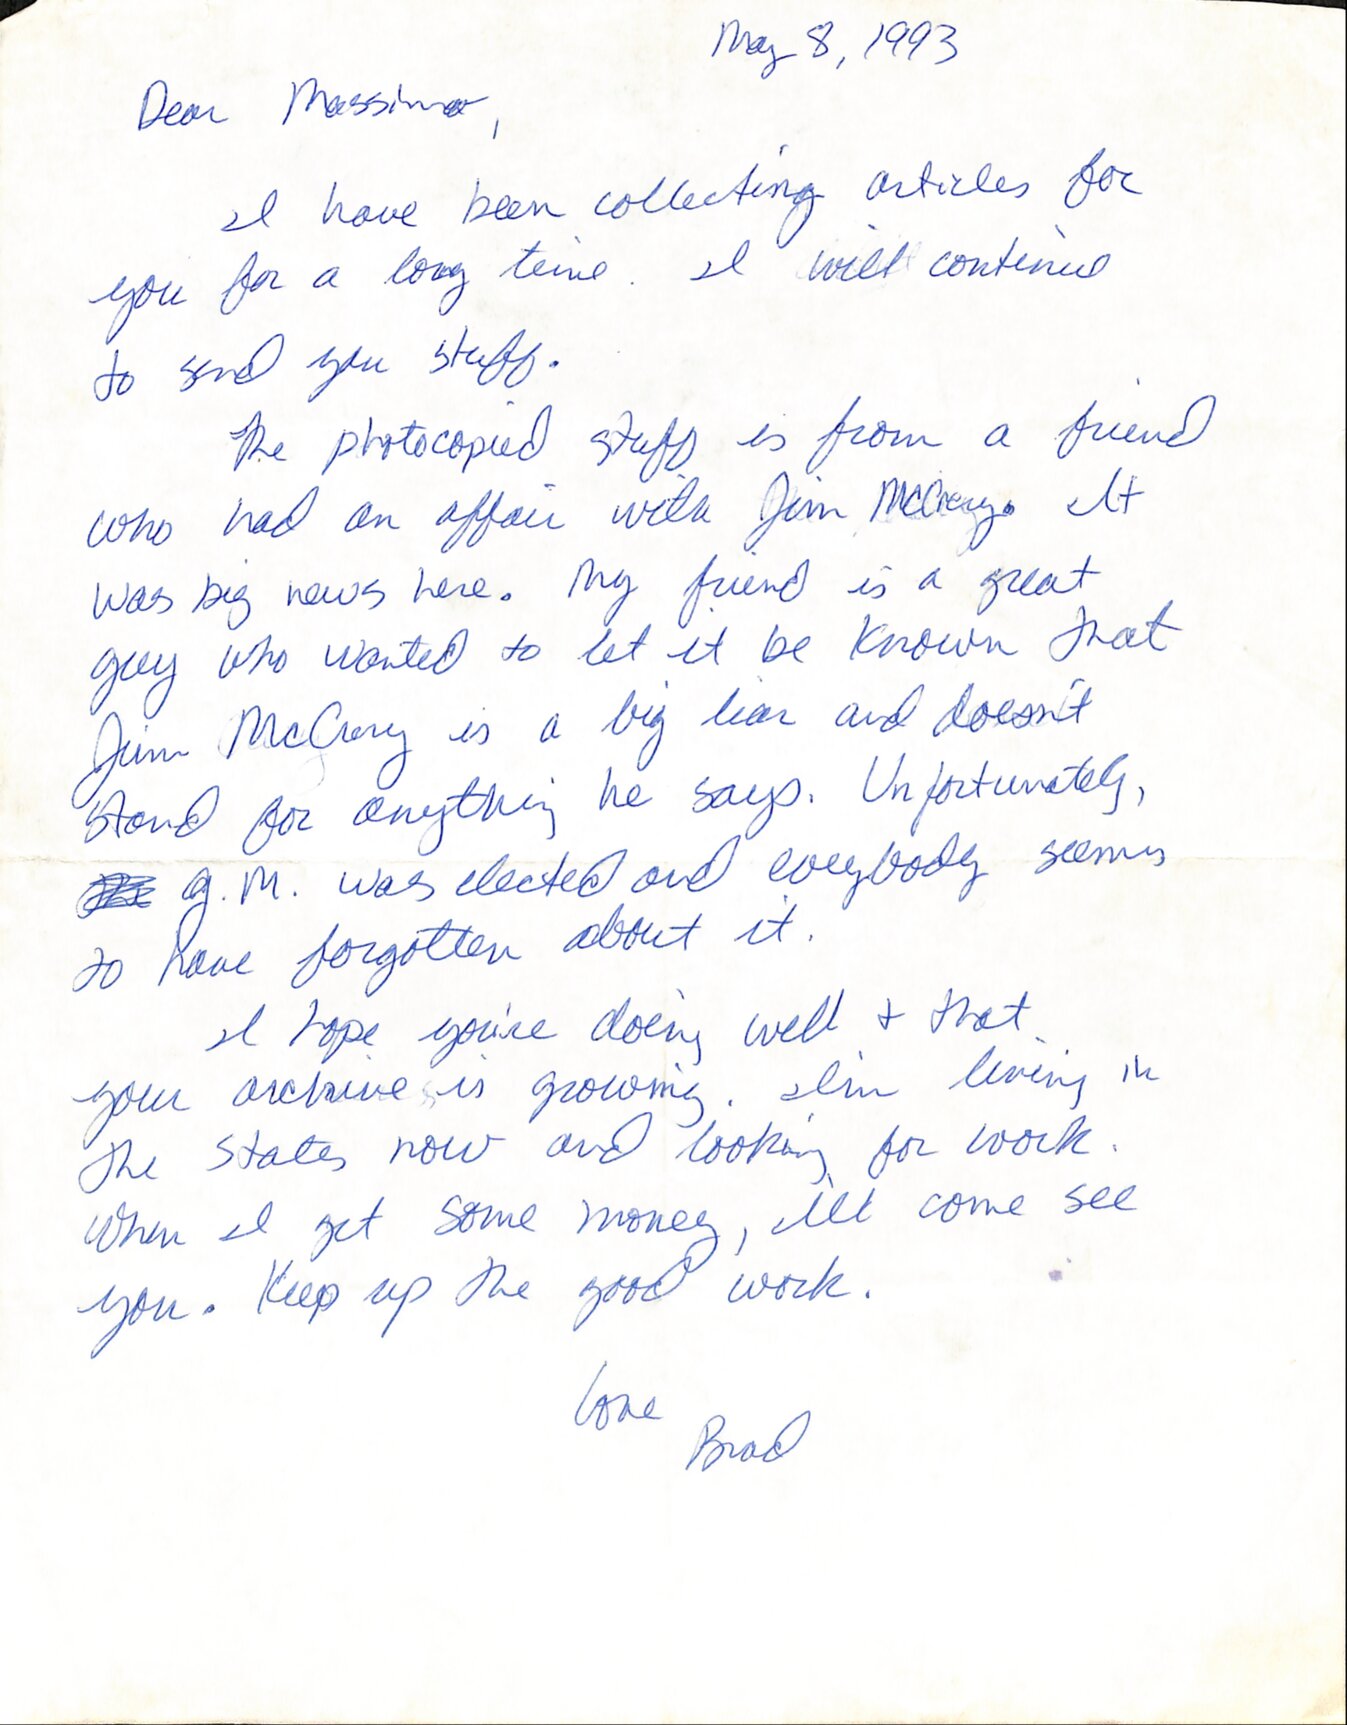 May 8, 1993
Dear Massimo,
I have been collecting articles for
you for a long time. I will continue
to send you stuff.
The photocopied stuff is from a friend
who had an affair with Jim McCrery. It
was big news here. My friend is a great
guy who wanted to let it be known that
Jim McCrery is a big liar and doesn't
stand for anything he says. Unfortunately,
J.M. was elected and everybody seems
to have forgotten about it.
I hope you're doing well + that
your archive is growing. I'm living in
the States now and looking for work.
When I get some money, I'll come see
you. Keep up the good work.
Love
Brad